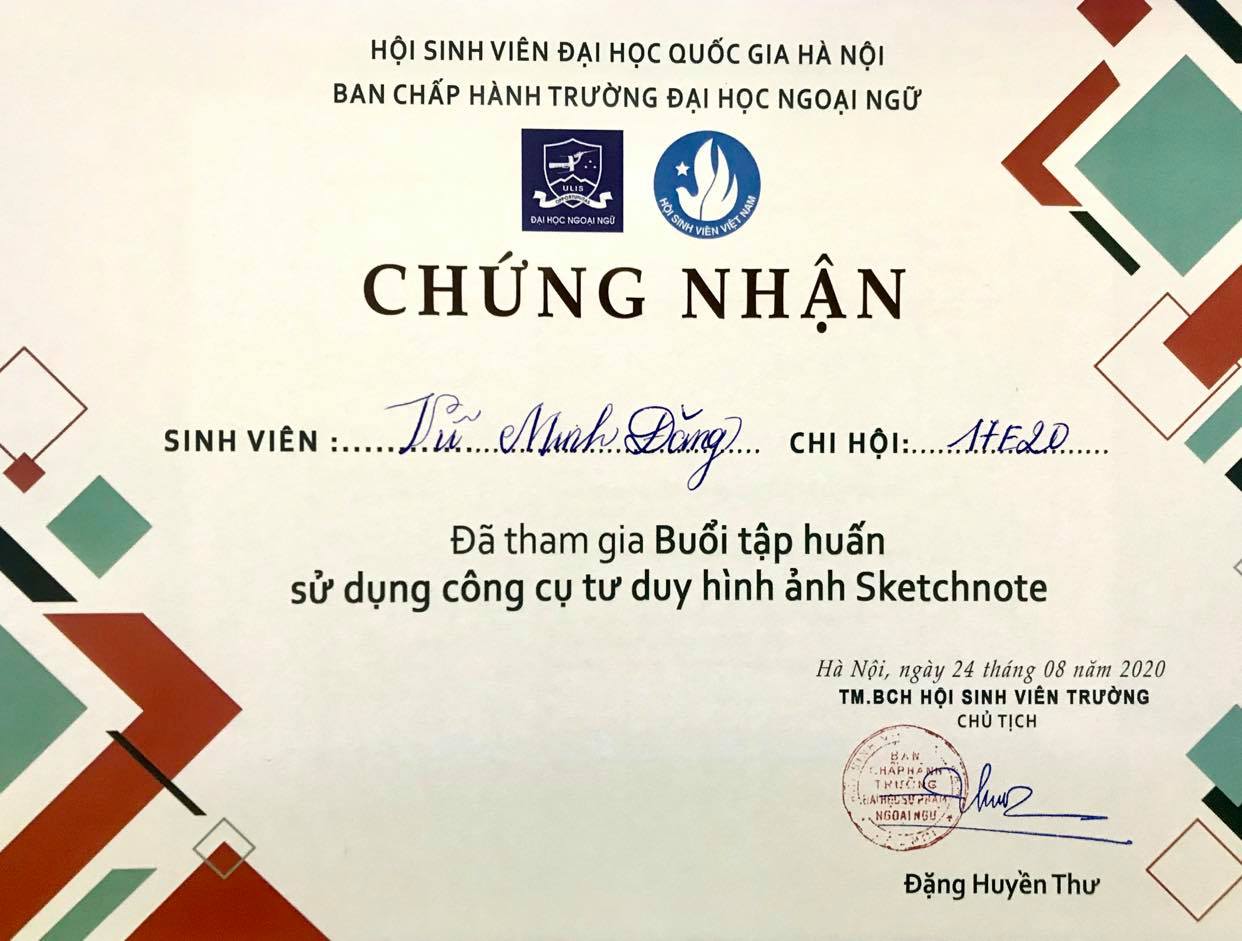 HỘI SINH VIÊN ĐẠI HỌC QUỐC GIA HÀ NỘI
BAN CHẤP HÀNH TRƯỜNG ĐẠI HỌC NGOẠI NGỮ
ULIS
ĐẠI HỌC NGOẠI NGỮ
HỘI SINH VIÊN VIỆT NAM
CHỨNG NHẬN
SINH VIÊN :..... Vũ Minh Đăng ..... CHI HỘI:..... 17E20 .....
Đã tham gia Buổi tập huấn
sử dụng công cụ tư duy hình ảnh Sketchnote
Hà Nội, ngày 24 tháng 08 năm 2020
TM.BCH HỘI SINH VIÊN TRƯỜNG
CHỦ TỊCH
BAN
CHẤP HÀNH
TRƯỜNG
ĐẠI HỌC SƯ PHẠM
NGOẠI NGỮ
Đặng Huyền Thư